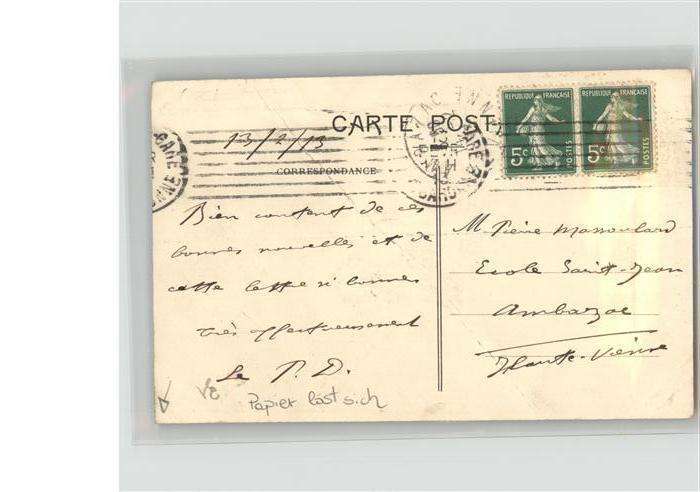 CARTE POST
13/2/13
CORRESPONDANCE
REPUBLIQUE FRANÇAISE
5c
POSTES
REPUBLIQUE FRANÇAISE
5c
POSTES
GARE
Bien content de ces
bonnes nouvelles et de
cette lettre si bonnes
Très affectueusement
Le P. D.
M. Pierre Massoulard
Ecole Saint-Jean
Ambazac
Haute-Vienne
Papier löst sich